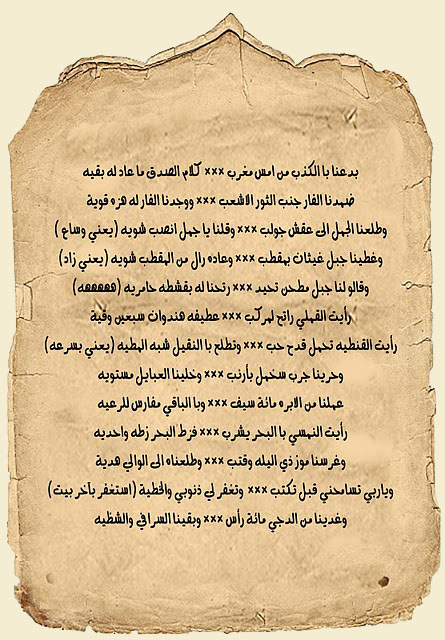 بدعنا با الكذب من امس مغرب ××× كلام الصدق ماعاد له بقيه
ضمدنا الفار جنب الثور الاشعب ××× ووجدنا الفار له هزه قوية
وطلعنا الجمل الى عقش جولب ××× وقلنا يا جمل انصب شويه (يعني وساع)
وغطينا جبل غيثان بمقطب ××× وعاده زال من المقطب شويه (يعني زاد)
وقالو لنا جبل مطحن تحيد ××× رتحنا له بقشطه حامريه (هههههه)
رأيت القملي راتح لمركب ××× عطيفه هندوان سبعين وقية
رأيت القنطيه تحمل قدح حب ××× وتطلع با النقيل شبه المطيه (يعني بسرعه)
وحرينا جرب سخمل بأرنب ××× وخلينا العبايل مستويه
عملنا من الابره مائة سيف ××× وبا الباقي مفارس للرعيه
رأيت النمسي با البحر يشرب ××× فرط البحر زطه واحديه
وغرسنا موز ذي الليله وقتب ××× وطلعناه الى الوالي هدية
وياربي تسامحني قبل تكتب ××× وتغفر لي ذنوبي والخطية (استغفر بآخر بيت)
وغدينا من الدجي مائة رأس ××× وبقينا السرافي والشظيه